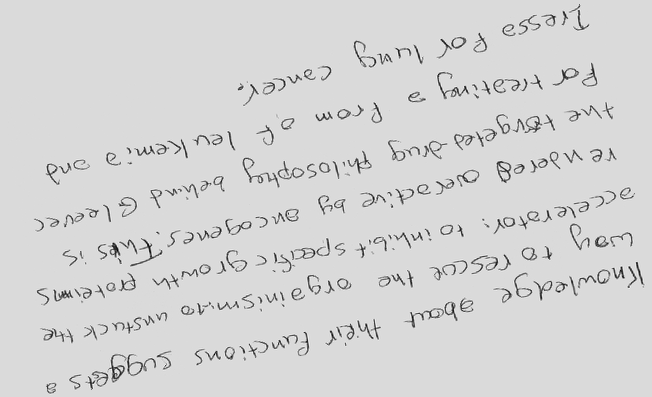 Knowledge about their functions suggests a
way to rescue the orgainism:to unstuck the
accelerator: to inhibit specific growth proteims
rendered overactive by oncogenes. This is
the targeted-drug philosophy behind Gleevec
for treating a from of leukemia and
Iressa for lung cancer.